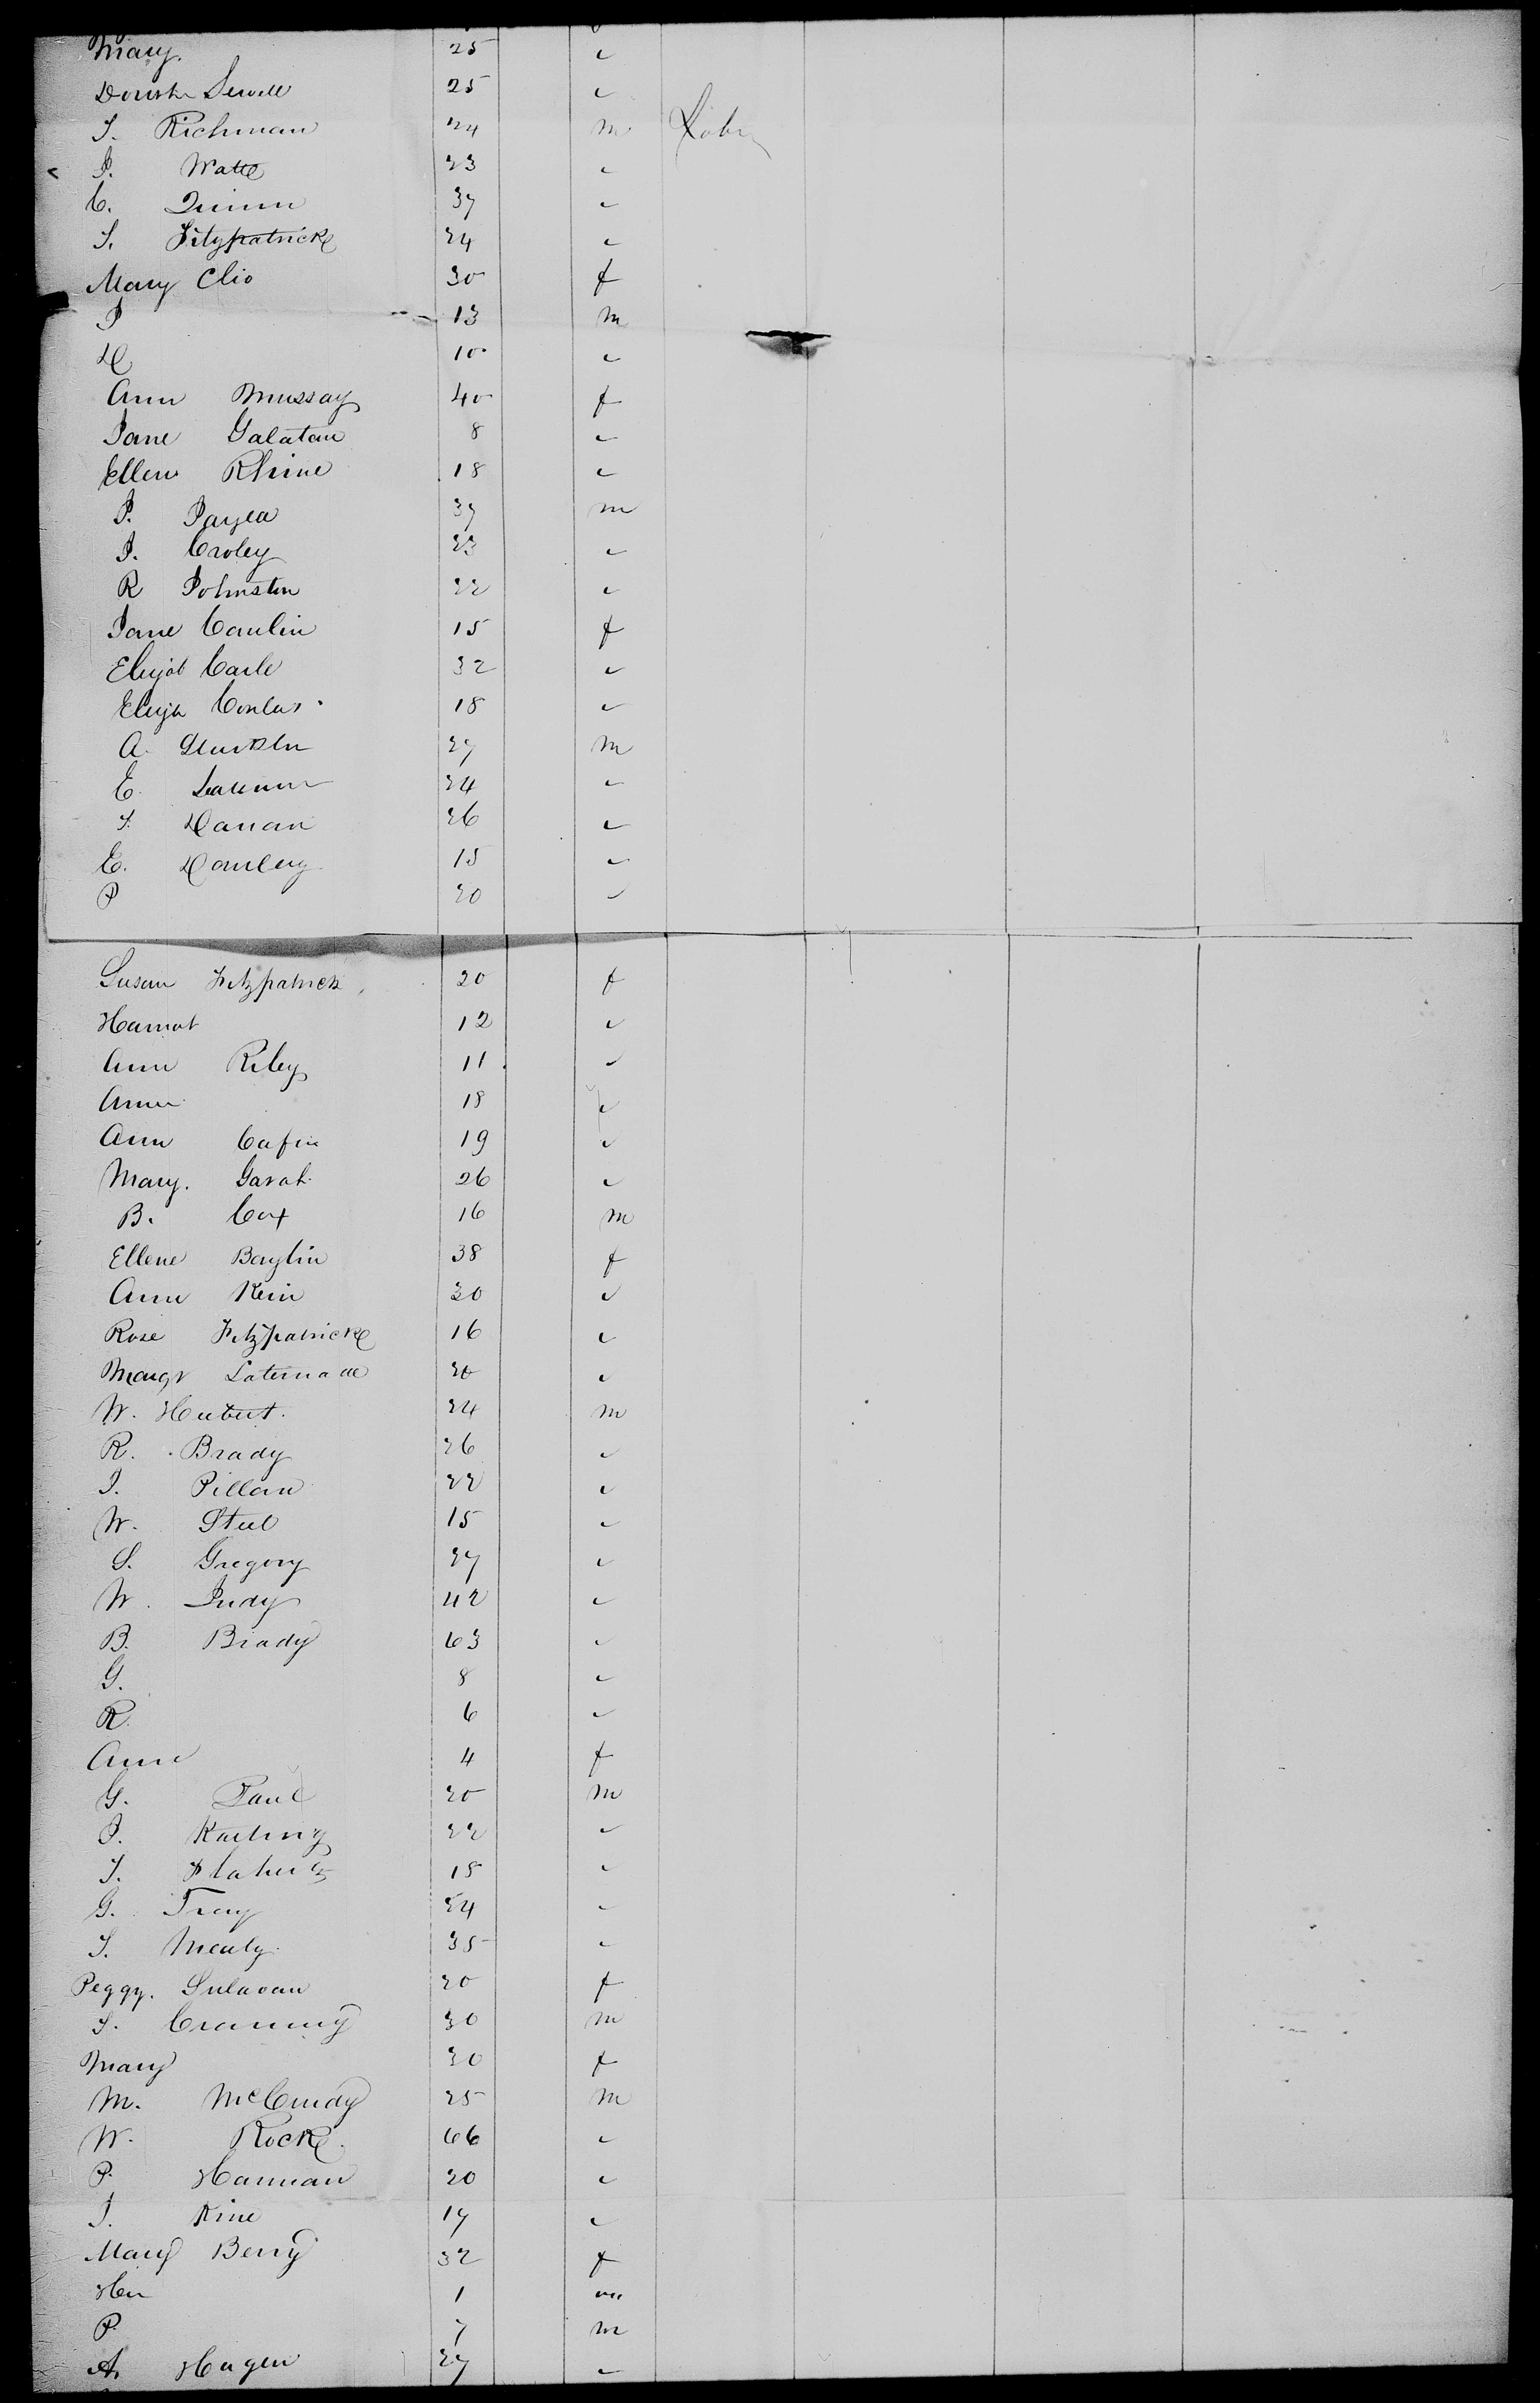 Mary. 25 "
Sewell 25 "
T. Richman 24 m Labr
P. Watte 23 "
C. Quinn 37 "
T. Fitzpatrick 24 "
Mary Clio 30 f
P 13 m
D 10 "
Ann Mussay 40 f
Jane Galatan 8 "
Ellen Rhine 18 "
P. Payea 37 m
J. Croley 23 "
R Johnston 22 "
Jane Conlin 15 f
Carle 32 "
18 "
A. 27 m
E. 24 "
T. Danan 26 "
E. Danley 15 "
P 20 "
Susan Fitzpatrick 20 f
Harriot 12 "
Ann Riley 11 "
Ann 18 "
Ann Cafin 19 "
Mary. Garah 26 "
B. Cox 16 m
Ellene Boylin 38 f
Ann Kein 30 "
Rose Fitzpatrick 16 "
Margt 20 "
W. Hubert. 24 m
R. Brady 26 "
J. Pillan 22 "
W. Steel 15 "
S. Gregory 27 "
W. Judy 42 "
B. Brady 63 "
G. 8 "
R. 6 "
Ann 4 f
G. Paul 20 m
P. 22 "
T. 18 "
G. Tray 24 "
T. Mealy 35 "
Peggy. Sulavan 20 f
T. Craning 30 m
Mary 20 f
M. McCurdy 25 m
W. Rock. 66 "
P. Hannan 20 "
J. Kine 17 "
Mary Berry 32 f
Hen 1 m
P. 7 m
A. Hagen 27 "